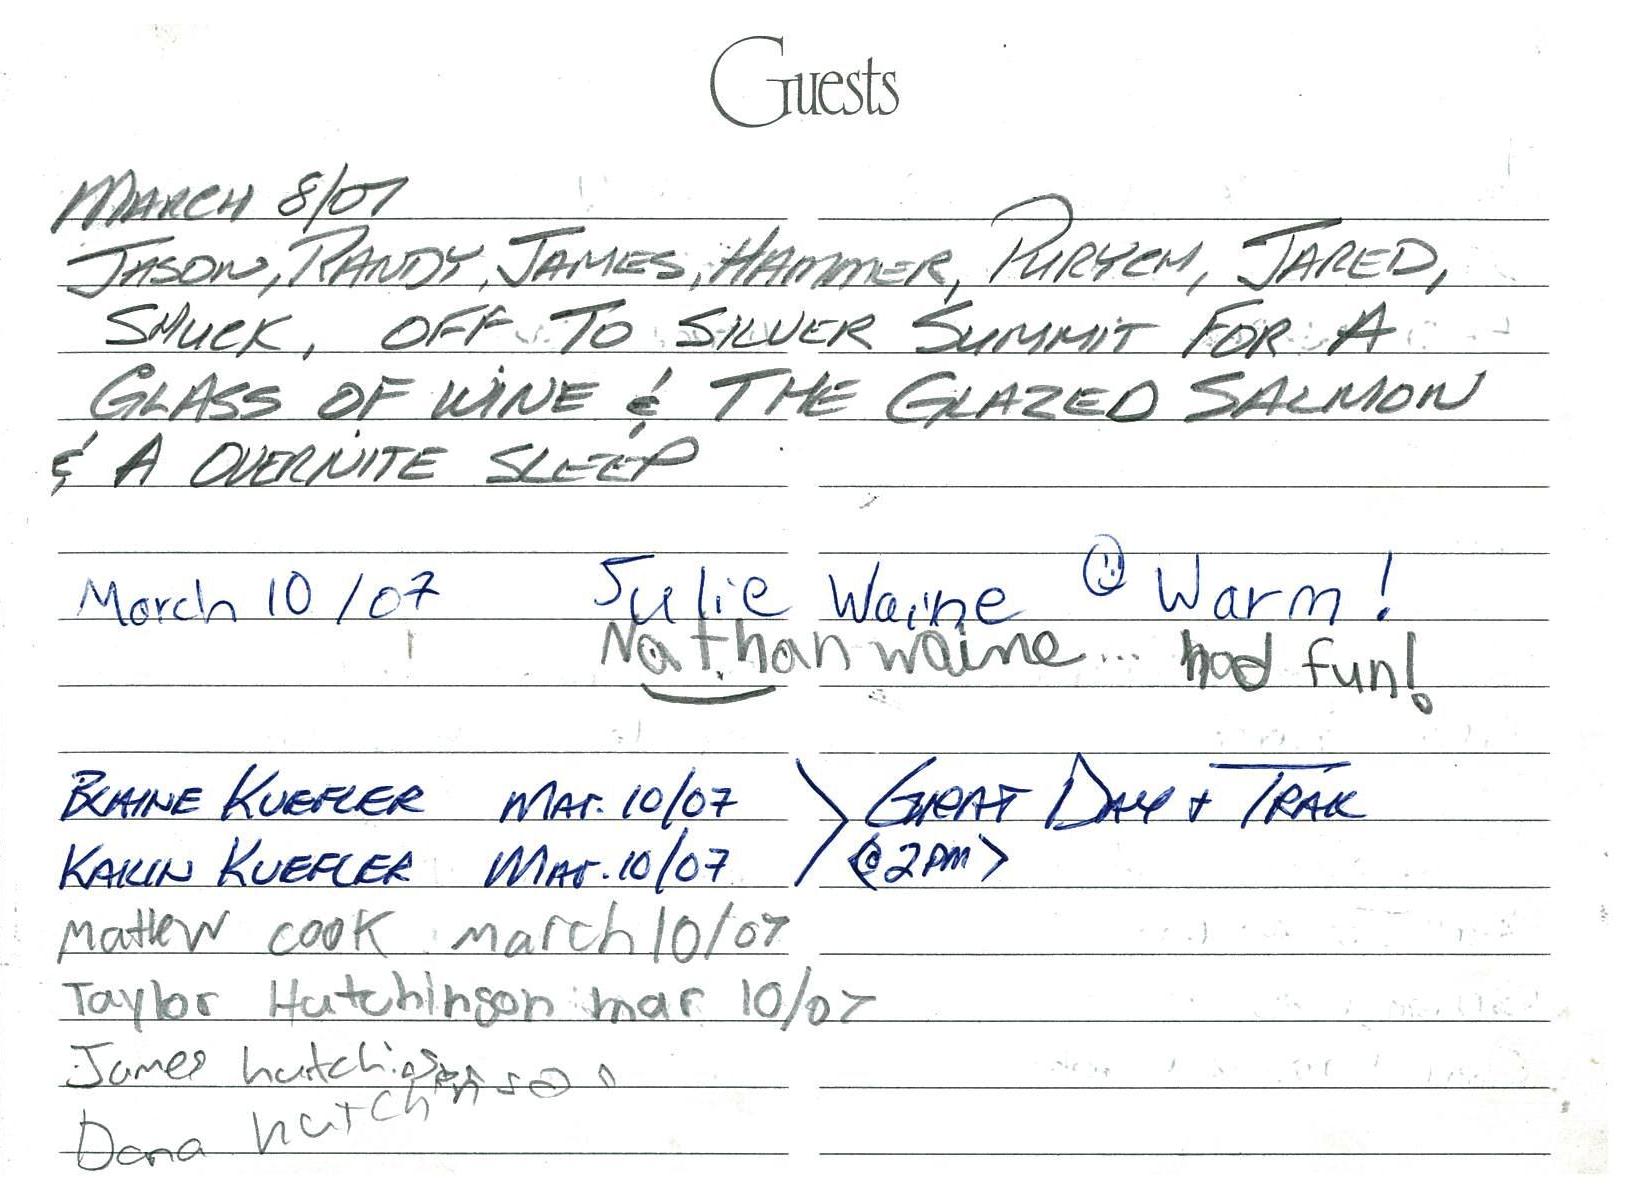 Guests
MARCH 8/07
JASON, RANDY, JAMES, HAMMER, PURYCH, JARED,
SMUCK, OFF TO SILVER SUMMIT FOR A
GLASS OF WINE & THE GLAZED SALMON
& A OVERNITE SLEEP
March 10/07 Julie Waine ☺ Warm!
Nathan waine... had fun!
BLAINE KUEFLER MAR. 10/07 > GREAT DAY + TRAK
KARIN KUEFLER MAR. 10/07 <@2PM>
Mattew cook march 10/07
Taylor Hutchinson mar 10/07
James hutchinson
Dana hutchinson